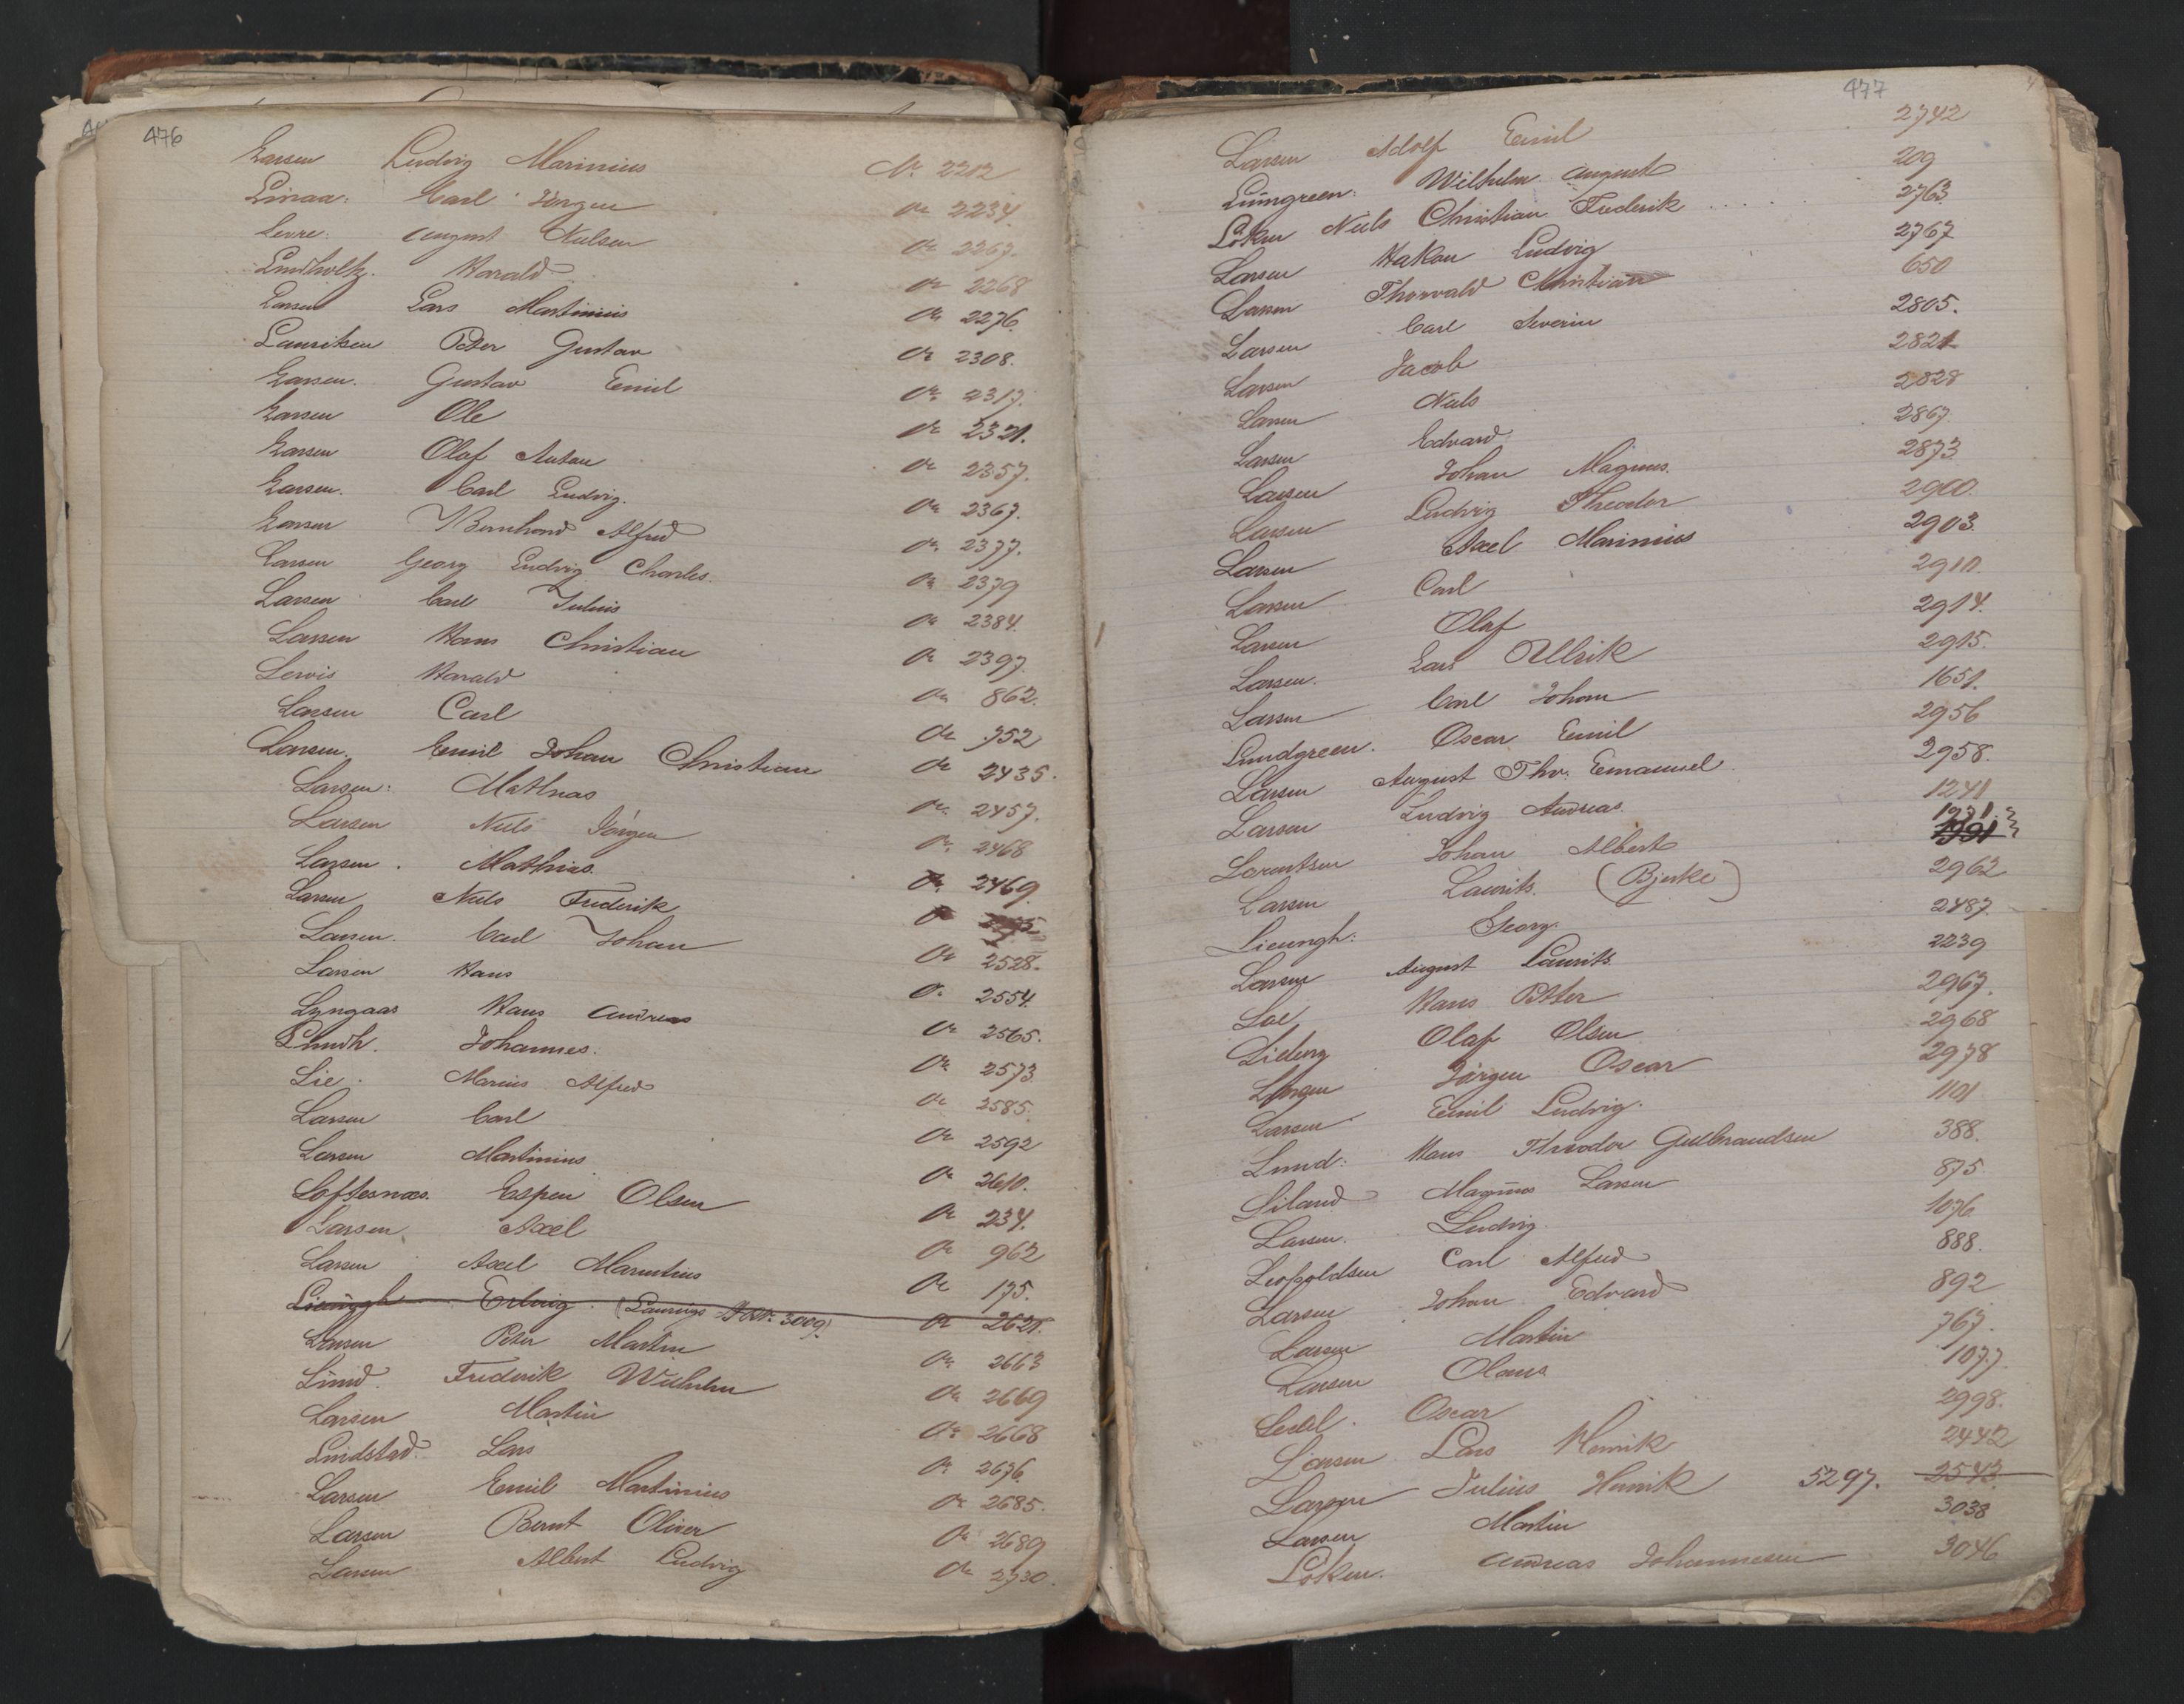 476
Larsen Ludvig Marinius No 2212
Linaa: Carl Jörgen " 2234.
Levre: August Nielsen " 2267.
Lindholtz. Harald " 2268
Larsen Lars Martinius " 2276.
Lauritsen Peter Gustav " 2308.
Larsen. Gustav Emil " 2317.
Larsen Ole " 2321.
Larsen Olaf Anton " 2357.
Larsen. Carl Ludvig. " 2367.
Larsen Bernhard Alfred " 2377.
Larsen Georg Ludvig Charles. " 2379
Larsen Carl Julius " 2384.
Larsen Hans Christian " 2397.
Lewis Harald " 862.
Larsen Carl " 752
Larsen. Emil Johan Christian " 2435.
Larsen: Mathias " 2457.
Larsen Niels Jörgen " 2468
Larsen. Mathias. " 2469.
Larsen Niels Frederik "
Larsen. Carl Johan " 2528.
Larsen Hans " 2554.
Lyngaas Hans Andreas " 2565.
Lundh. Johannes. " 2573
Lie. Marius Alfred " 2585.
Larsen Carl " 2592
Larsen Martinius " 2610.
Loftesnæs. Espen Olsen " 234.
Larsen. Axel " 962
Larsen Axel Martinius " 175.
Lieungh Erling. (Laurvigs 3009) " 2621.
Larsen Peter Martin " 2663
Lund. Frederik Wilhelm " 2669
Larsen Martin " 2668
Lindstad. Lars " 2676.
Larsen Emil Martinius " 2685.
Larsen Bernt Oliver " 2689
Larsen Albert Ludvig " 2730.
477
Larsen Adolf Emil 2742
Lungreen: Wilhelm August 209
Löken Niels Christian Frederik 2763.
Larsen Hakon Ludvig 2767
Larsen Thorvald Christian 650
Larsen Carl Severin 2805.
Larsen Jacob 2821
Larsen Niels 2828
Larsen Edvard 2867.
Larsen Johan Magnus. 2873
Larsen Ludvig Theodor 2900.
Larsen Axel Marinius 2903.
Larsen Carl 2911.
Larsen Olaf 2914.
Larsen. Lars Ullrik 2915.
Larsen Carl Johan 1651.
Lundgreen. Oscar Emil 2956
Larsen August Thv. Emanuel 2958.
Larsen Ludvig Andreas. 1241
Lorentsen Johan Albert 1771.
Larsen Laurits. (Bjerke) 2962
Lieungh: Georg. 2487.
Larsen August Laurits. 2239
Loe Hans Petter 2967.
Lieberg Olaf Olsen 2968
Jörgen Oscar 2978
Larsen Emil Ludvig. 1101
Lund: Hans Theodor Gulbrandsen 388.
Liland Magnus Larsen 875.
Larsen. Ludvig. 1076
Leopoldsen Carl Alfred 888.
Larsen Johan Edvard 892
Larsen Martin 767.
Larsen Olaus 1077.
Oscar 2998.
Larsen Lars Henrik 2442
Larsen Julius Henrik 5297. 2543.
Larsen Martin 3038
Löken. Andreas Johannesen 3046